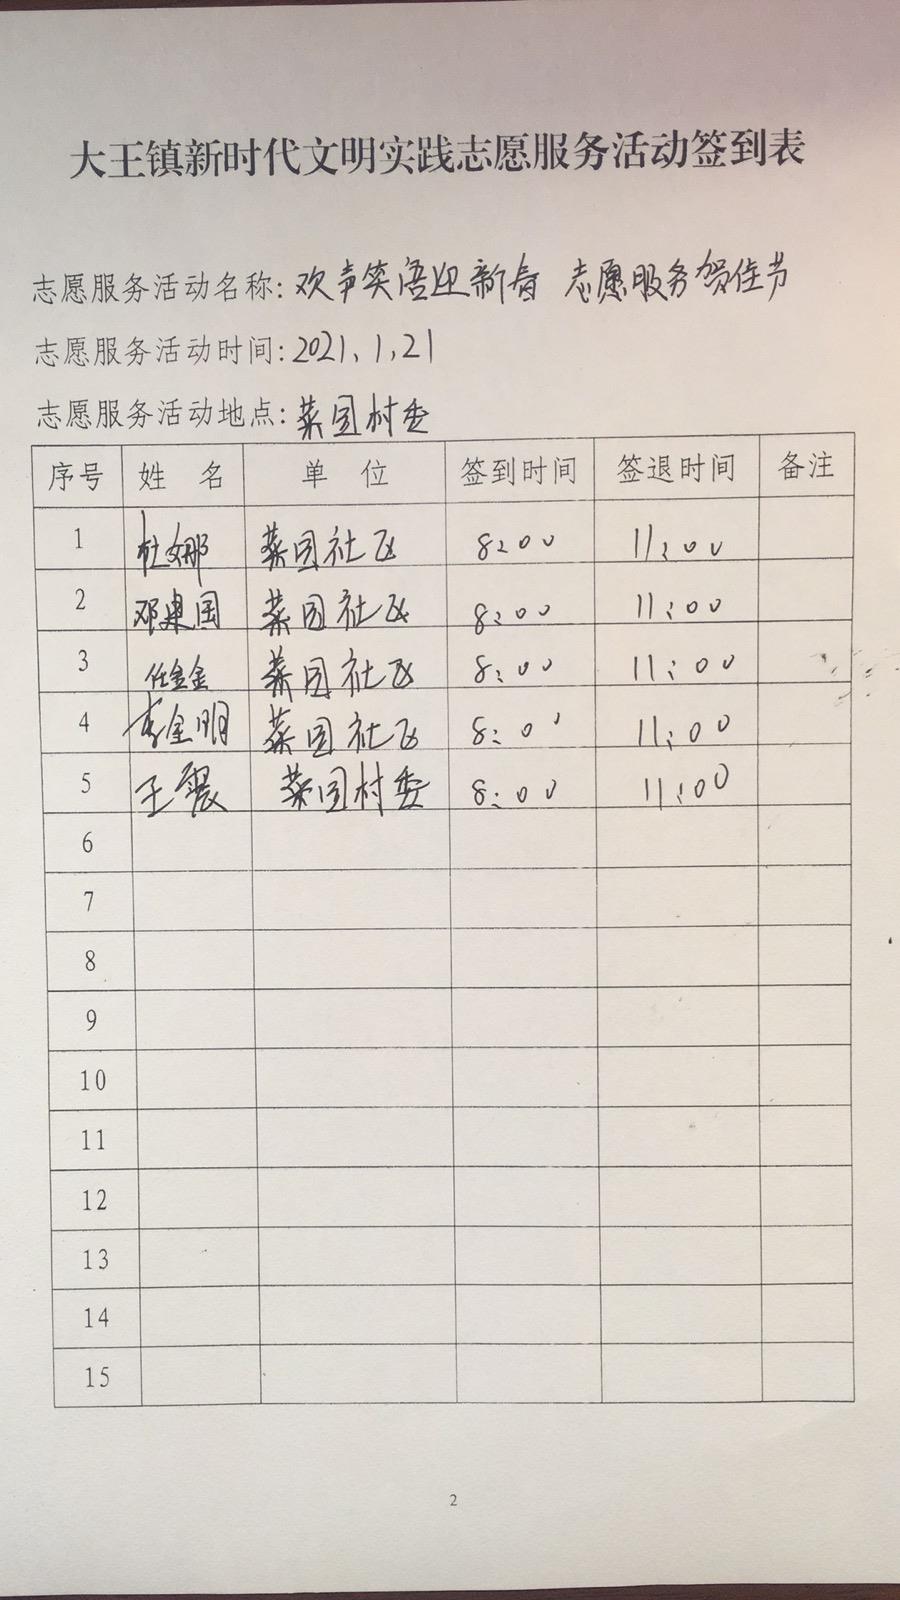 大王镇新时代文明实践志愿服务活动签到表
志愿服务活动名称:欢声笑语迎新春 志愿服务贺佳节
志愿服务活动时间:2021.1.21
志愿服务活动地点:菜园村委
序号 姓 名 单 位 签到时间 签退时间 备注
1 杜娜 菜园社区 8:00 11:00
2 邓建国 菜园社区 8:00 11:00
3 任金金 菜园社区 8:00 11:00
4 李全明 菜园社区 8:00 11:00
5 王震 菜园村委 8:00 11:00
6
7
8
9
10
11
12
13
14
15
2